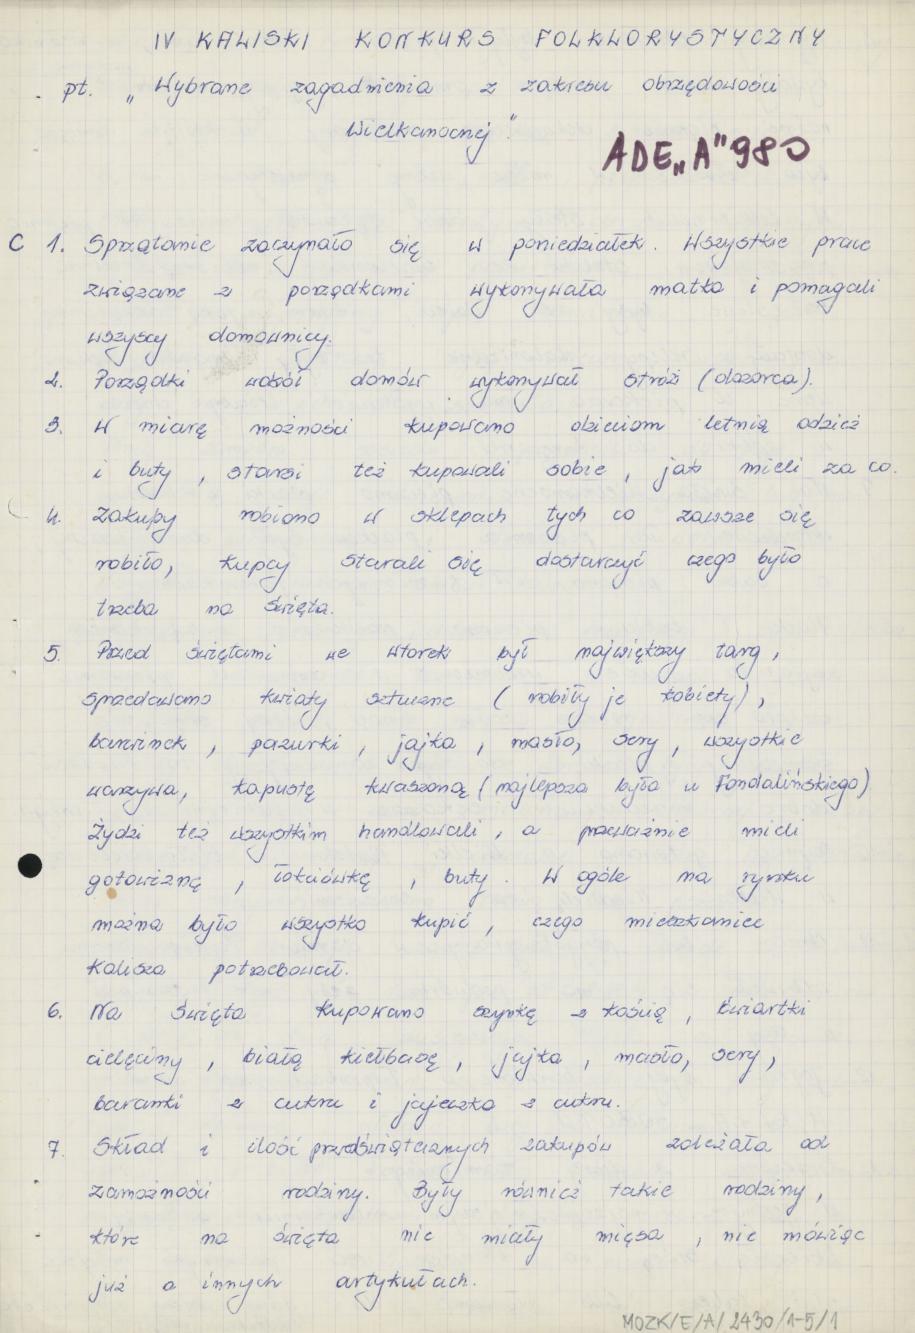 IV KALISKI KONKURS FOLKLORYSTYCZNY
pt. „Wybrane zagadnienia z zakresu obrzędowości
Wielkanocnej"
ADE„A"980
C 1. Sprzątanie zaczynało się w poniedziałek. Wszystkie prace
związane z porządkami wykonywała matka i pomagali
wszyscy domownicy.
2. Porządki wokół domów wykonywał stróż (dozorca).
3. W miarę możności kupowano dzieciom letnią odzież
i buty, starsi też kupowali sobie, jak mieli za co.
4. Zakupy robiono w sklepach tych co zawsze się
robiło, kupcy starali się dostarczyć czego było
trzeba na święta.
5. Przed świętami we wtorek był największy targ,
sprzedawano kwiaty sztuczne (robiły je kobiety),
barwinek, pazurki, jajka, masło, sery, wszystkie
warzywa, kapustę kwaszoną (najlepsza była u Fondalińskiego)
Żydzi też wszystkim handlowali, a przeważnie mieli
gotowiznę, łokciówkę, buty. W ogóle na rynku
można było wszystko kupić, czego mieszkaniec
Kalisza potrzebował.
6. Na święta kupowano szynkę z kością, ćwiartki
cielęciny, białą kiełbasę, jajka, masło, sery,
baranki z cukru i jajeczka z cukru.
7. Skład i ilość przedświątecznych zakupów zależała od
zamożności rodziny. Były również takie rodziny,
które na święta nie miały mięsa, nie mówiąc
już o innych artykułach.
MOZK/E/A/2430/1-5/1